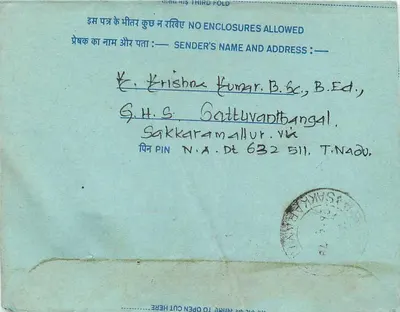 THIRD FOLD
इस पत्र के भीतर कुछ न रखिए NO ENCLOSURES ALLOWED
प्रेषक का नाम और पता :— SENDER'S NAME AND ADDRESS :—
K. Krishna Kumar. B.Sc., B.Ed.,
G.H.S. Sattuvanthangal,
Sakkaramallur. Via
पिन PIN N.A. Dt 632 511. T. Nadu.
TO OPEN CUT HERE